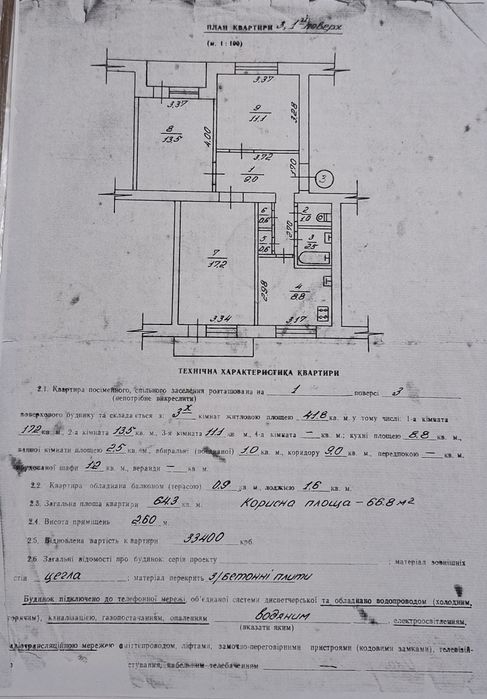 ПЛАН КВАРТИРИ 3, 1ший поверх
(м. 1 : 100)
3.37
3.37
9
11.1
3.28
8
13.5
4.00
3.72
1
9.0
1.70
3
6
0.6
2
1.0
2.70
3
2.5
5
0.6
7
17.2
2.98
4
8.8
3.34
3.17
ТЕХНІЧНА ХАРАКТЕРИСТИКА КВАРТИРИ
2.1. Квартира посімейного, спільного заселення розташована на 1 поверсі 3
(непотрібне викреслити)
поверхового будинку та складається з: 3х кімнат житловою площею 41.8 кв. м у тому числі: 1-а кімната
17.2 кв. м, 2-а кімната 13.5 кв. м, 3-я кімната 11.1 кв. м, 4-а кімната — кв. м.; кухні площею 8.8 кв. м.,
ванної кімнати площею 2.5 кв. м., вбиральні 1.0 кв. м., коридору 9.0 кв. м., передпокою — кв. м.
вбудованої шафи 1.2 кв. м., веранди — кв. м.
2.2. Квартира обладнана балконом (терасою) 0.9 кв. м., лоджією 1.6 кв. м.
2.3. Загальна площа квартири 64.3 кв. м. Корисна площа - 66.8 м2
2.4. Висота приміщень 2.60 м.
2.5. Відновлена вартість квартири 33400 крб.
2.6 Загальні відомості про будинок: серія проекту ; матеріал зовнішніх
стін цегла ; матеріал перекрить з/бетонні плити
Будинок підключено до телефонної мережі, об'єднаної системи диспетчерської та обладнано водопроводом (холодним,
гарячим), каналізацією, газопостачанням, опаленням водяним , електроосвітленням,
(вказати яким)
радіотрансляційною мережею сміттєпроводом, ліфтами, замочно-переговорними пристроями (кодовими замками),
кабельним телебаченням —